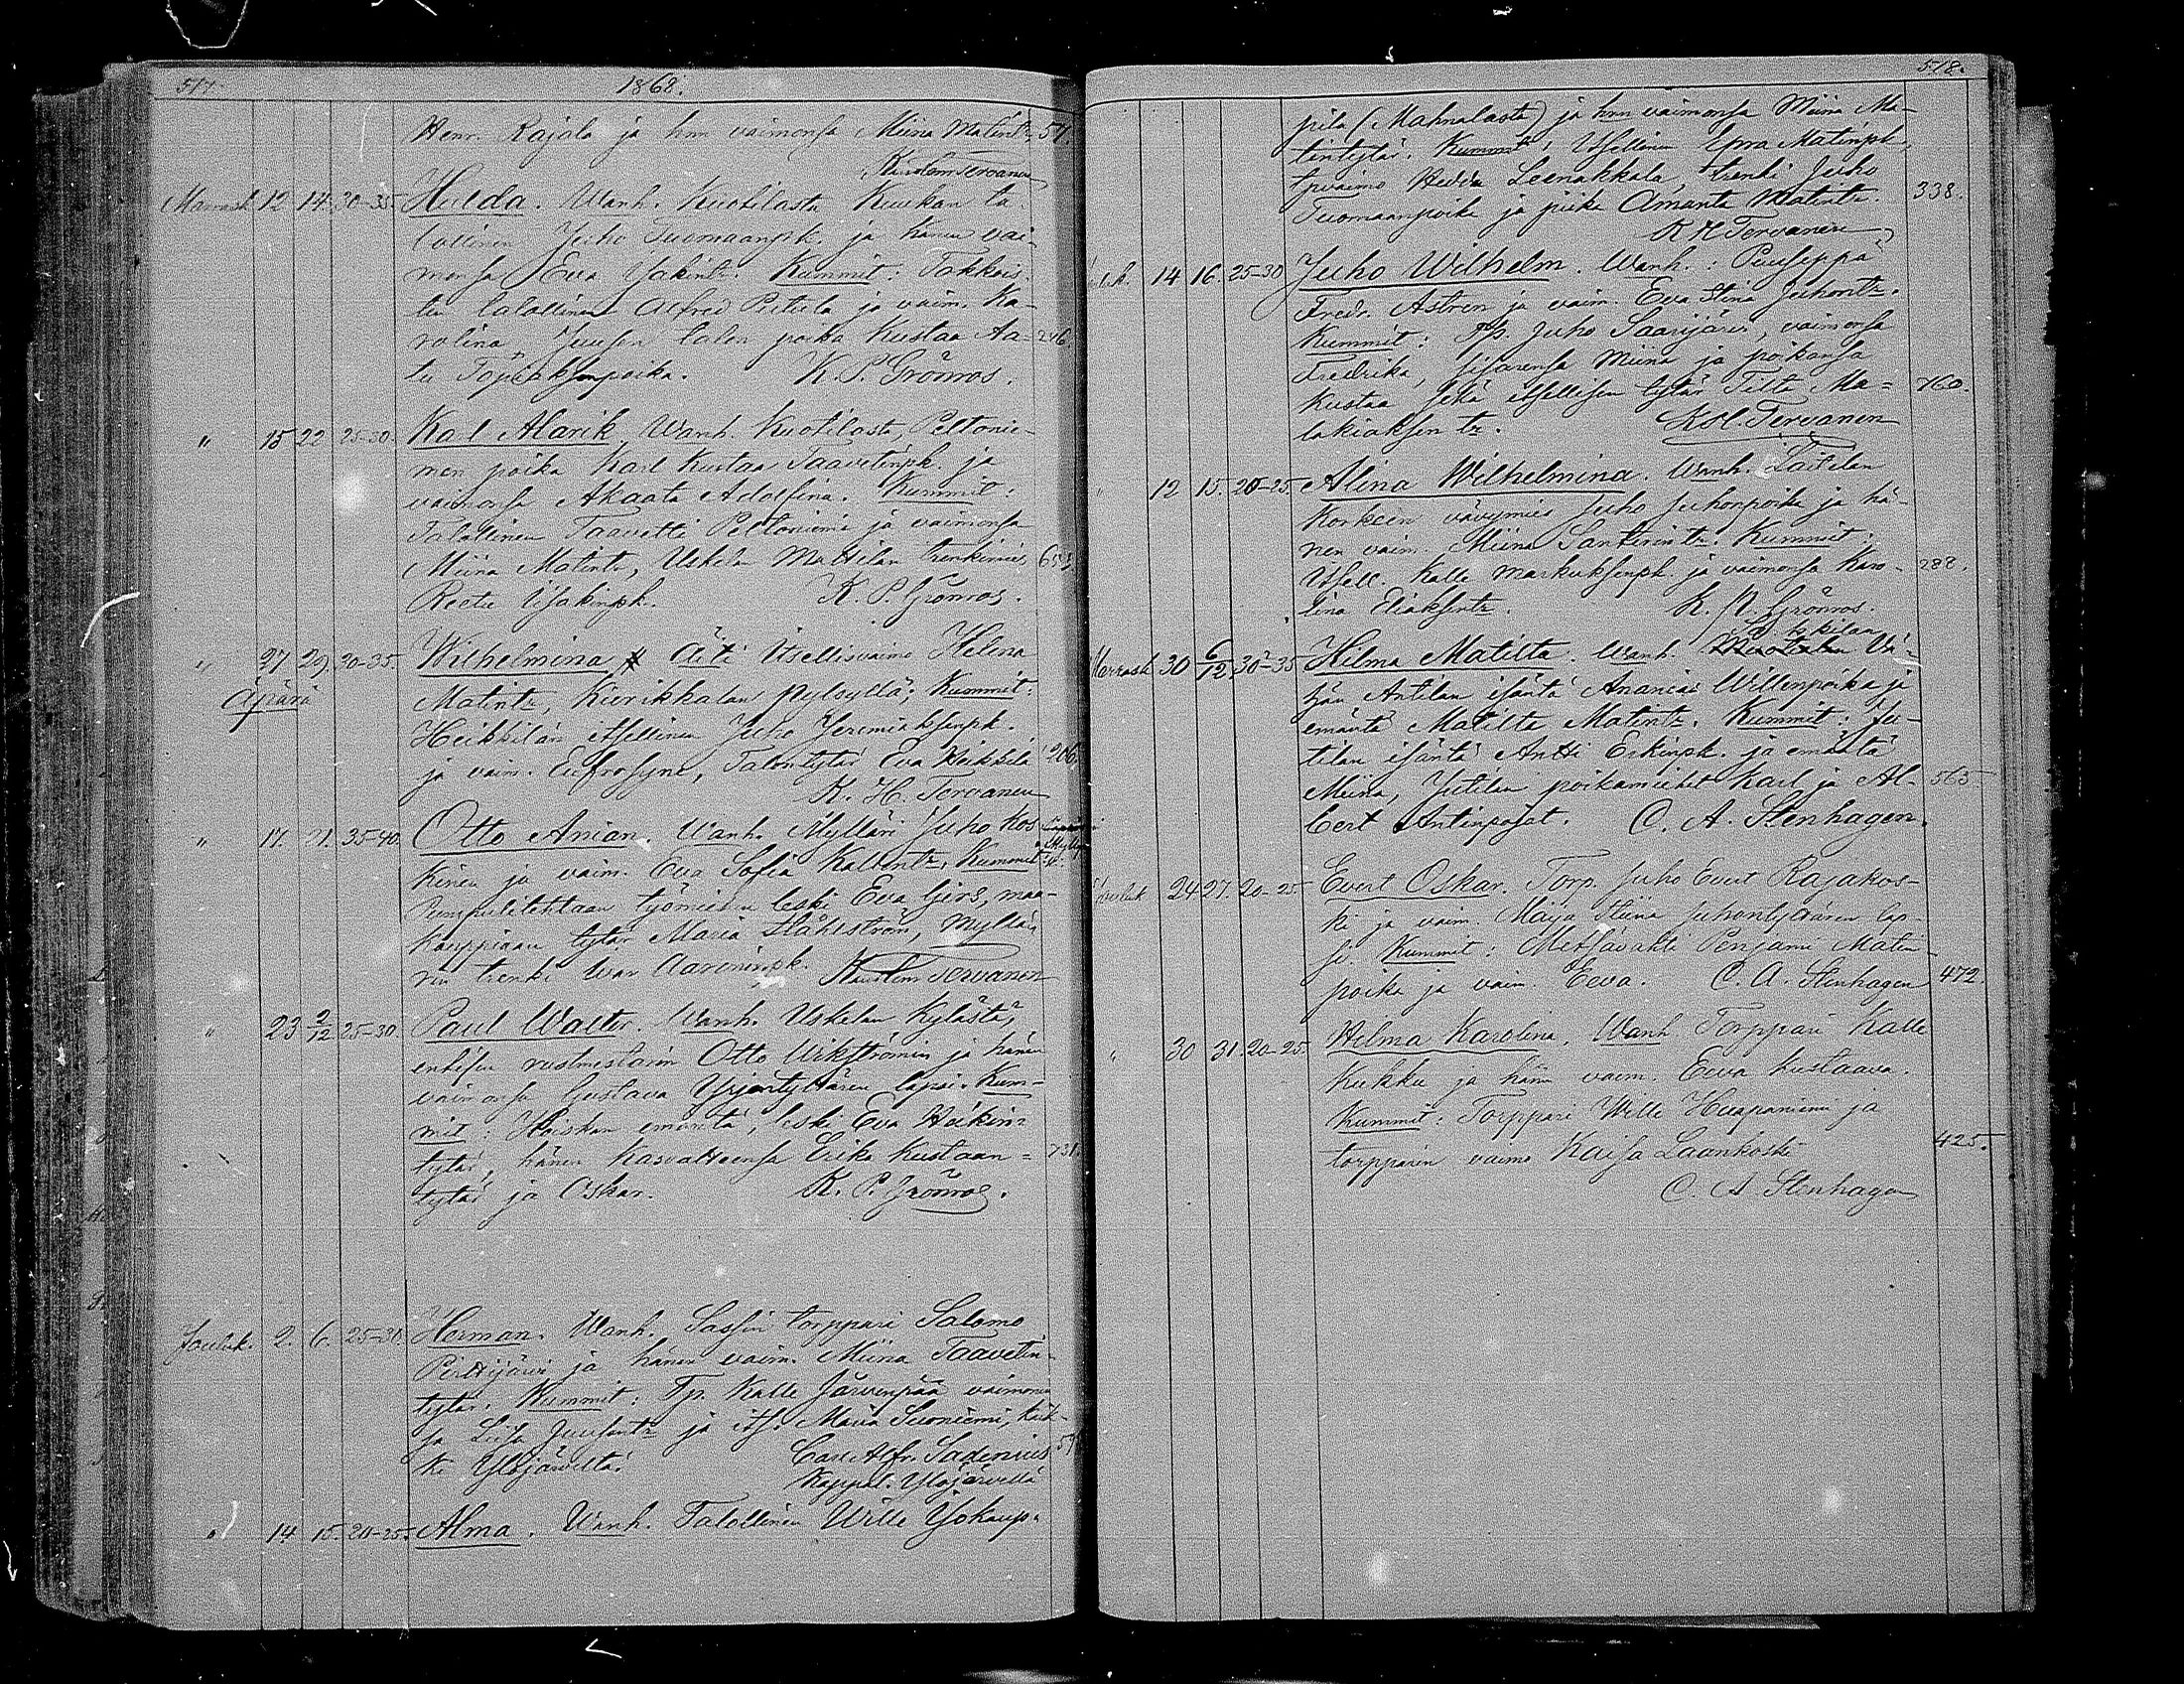 517
1868.
Henr. Rajala ja hnn vaimonsa Miina Matintr. 57.
Tervanen
Marrask. 12 14 30-35. Hulda. Wanh. Kuotilasta Kuukan ta-
lollinen Juho Tuomaanpk. ja hänen vai-
monsa Eva Isakintr. Kummit:
talollinen Alfred Pietila ja vaim. Ka-
rolina Juusen talon poika Kustaa Aa- 246.
tu Topiaksenpoika. K. P. Grönros.
" 15 22 25-30. Karl Alarik Wanh. Kuotilasta, Peltonie-
men poika Karl Kustaa Taavetinpk. ja
vaimonsa Akaata Adolfina. Kummit:
Talollinen Taavetti Peltoniemi ja vaimonsa
Miina Matintr, Uskelan Mattilan trenkimies
Reetu Isakinpk. K. P. Grönros.
" 27 29. 30-35. Wilhelmina Äiti Itsellisvaimo Helena
Äpärä Matintr, Kierikkalan pylsyllä; Kummit:
Heikkilän itsellinen Juho Jeremiaksenpk.
ja vaim. Eufrosyne, Talontytär Eva Heikkilä 206.
K. H. Tervanen
" 17. 21. 35-40. Otto Anian. Wanh. Mylläri Juho Kos-
kinen ja vaim. Eva Sofia Kallentr, Kummit:
Pumpulitehtaan työmiehen leski Eva Girs, maa-
kauppiaan tytär Maria Ståhlström, Myllä-
rin trenki Iwar Aaroninpk. Tervanen
" 23 2/12 25-30. Paul Walter. Wanh. Uskelan Kylästä,
entisen rustmestarin Otto Wikströmin ja hänen
vaimonsa Gustava Yrjöntyttären lapsi. Kum-
mit: Haiskan emäntä, leski Eva Heikin-
tytär, hänen kasvatteensa Erika Kustaan- 731.
tytär ja Oskar. K. P. Grönros.
Jouluk. 2. 6. 25-30. Herman. Wanh. Sassin torppari Salomo
Perttijärvi ja hänen vaim. Miina Taavetin-
tytär. Kummit: Tp. Kalle Järvenpää vaimonen-
sa Liisa Juusentr ja its. Maria Suoniemi, kaik-
ki Ylöjärveltä. Carl Alfr. Sadenius
Kappal. Ylöjärvellä
" 14. 15. 20-25. Alma. Wanh. Talollinen Wille Yokaup-
518.
pila (Mahnalasta) ja hnn vaimonsa Miina Ma-
tintytär. Kummit: Itsellinen Epra Matinpk,
tpvaimo Hedda Leenakkala, trenki Juho
Tuomaanpoika ja piika Amanta Matintr. 338.
K H Tervanen
14 16. 25-30 Juho Wilhelm. Wanh.: Puuseppä
Fredr. Astren ja vaim. Eva Stina Juhontr.
Kummit: Tp. Juho Saarijärvi, vaimonsa
Fredrika, sisarensa Miina ja poikansa
Kustaa sekä itsellisen tytär Tilta Ma- 760.
lakiaksen tr. Tervanen
" 12 15. 20-25. Alina Wilhelmina. Wanh. Laitilan
Korkein vävymies Juho Juhonpoika ja hä-
nen vaim. Miina Santerintr. Kummit:
Itsell. Kalle Markuksenpk. ja vaimonsa Karo- 288.
lina Eliaksentr. K. P. Grönros.
Marrask 30 6/12 30-35 Hilma Matilta. Wanh.
Antilan isäntä Ananias Willenpoika ja
emäntä Matilta Matintr. Kummit: Ju-
tilan isäntä Antti Erkinpk. ja emäntä
Miina, Jutilan poikamiehet Karl ja Al- 565.
bert Antinpojat. C. A. Stenhagen.
Jouluk 24 27. 20-25 Evert Oskar. Torp. Juho Evert Rajakos-
ki ja vaim. Maija Stiina Juhontyttären lap-
si. Kummit: Metsävahti Penjami Matin-
poika ja vaim. Eeva. C. A. Stenhagen 472.
" 30 31. 20-25. Hilma Karolina. Wanh Torppari Kalle
Kukku ja hänn vaim. Eeva Kustaava.
Kummit: Torppari Wille Haapaniemi ja
torpparin vaimo Kaisa Laankoski 425.
C. A. Stenhagen